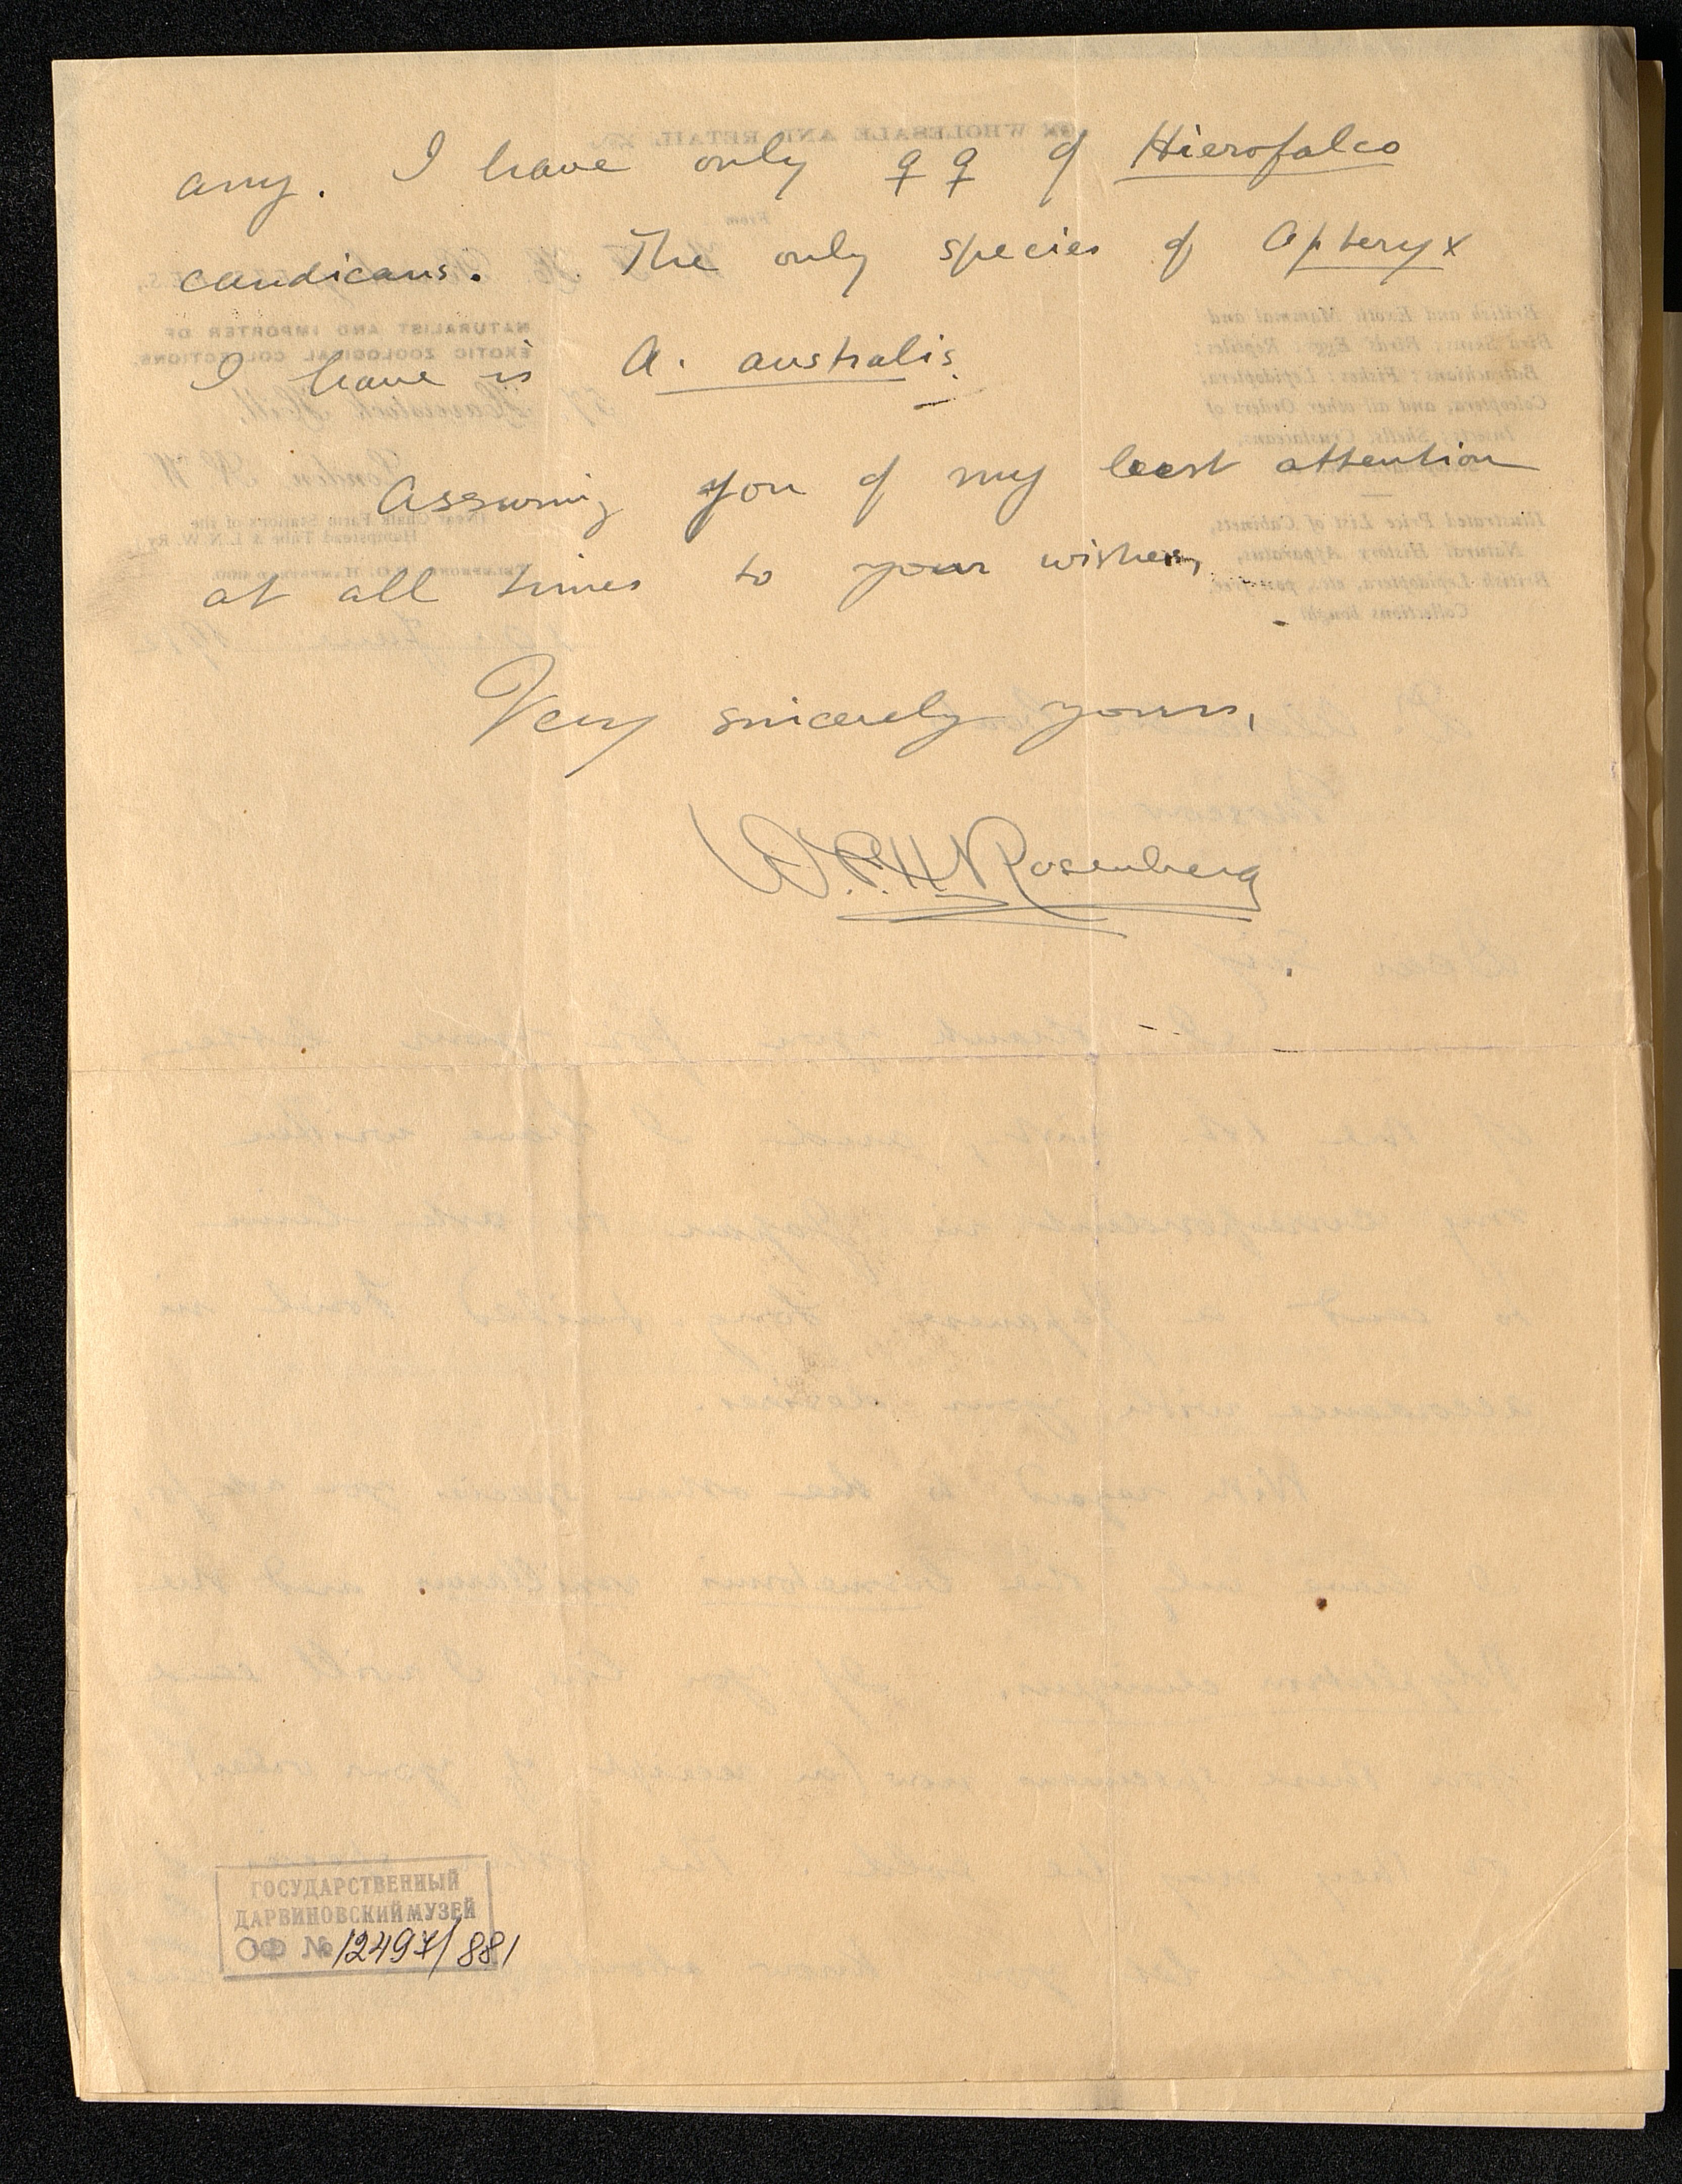 any. I have only ♀ ♀ of Hierofalco
candicans. The only species of Apteryx
I have is A. australis.
Assuring you of my best attention
at all times to your wishes,
Very sincerely yours,
W.F.H. Rosenberg
ГОСУДАРСТВЕННЫЙ
ДАРВИНОВСКИЙ МУЗЕЙ
ОФ № 12497/881